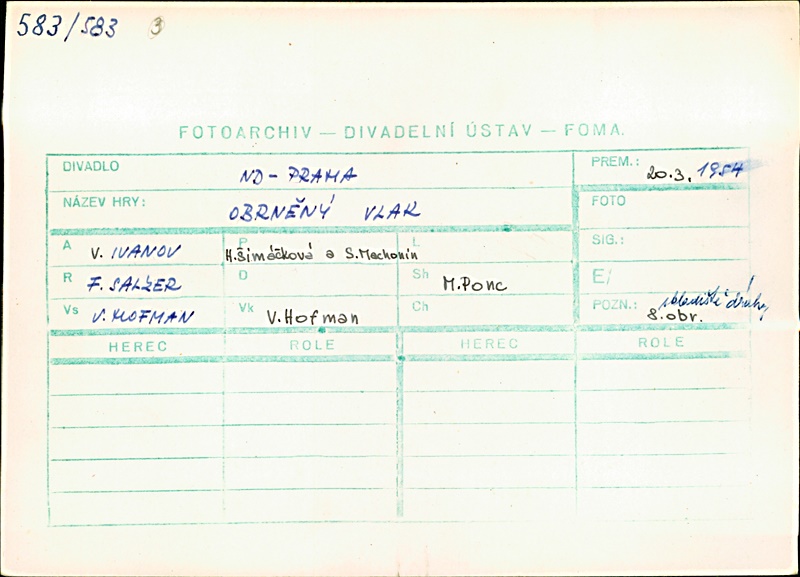 583/583 3
FOTOARCHIV — DIVADELNÍ ÚSTAV — FOMA.
DIVADLO ND - PRAHA PREM.: 20.3. 1954
NÁZEV HRY: OBRNĚNÝ VLAK FOTO
A V. IVANOV P H.Šimáčková a S.Machonin L SIG.:
R F. SALZER D Sh M.Ponc E/
Vs V. HOFMAN Vk V.Hofman Ch POZN.: 8.obr. skladiště dráhy
HEREC ROLE HEREC ROLE